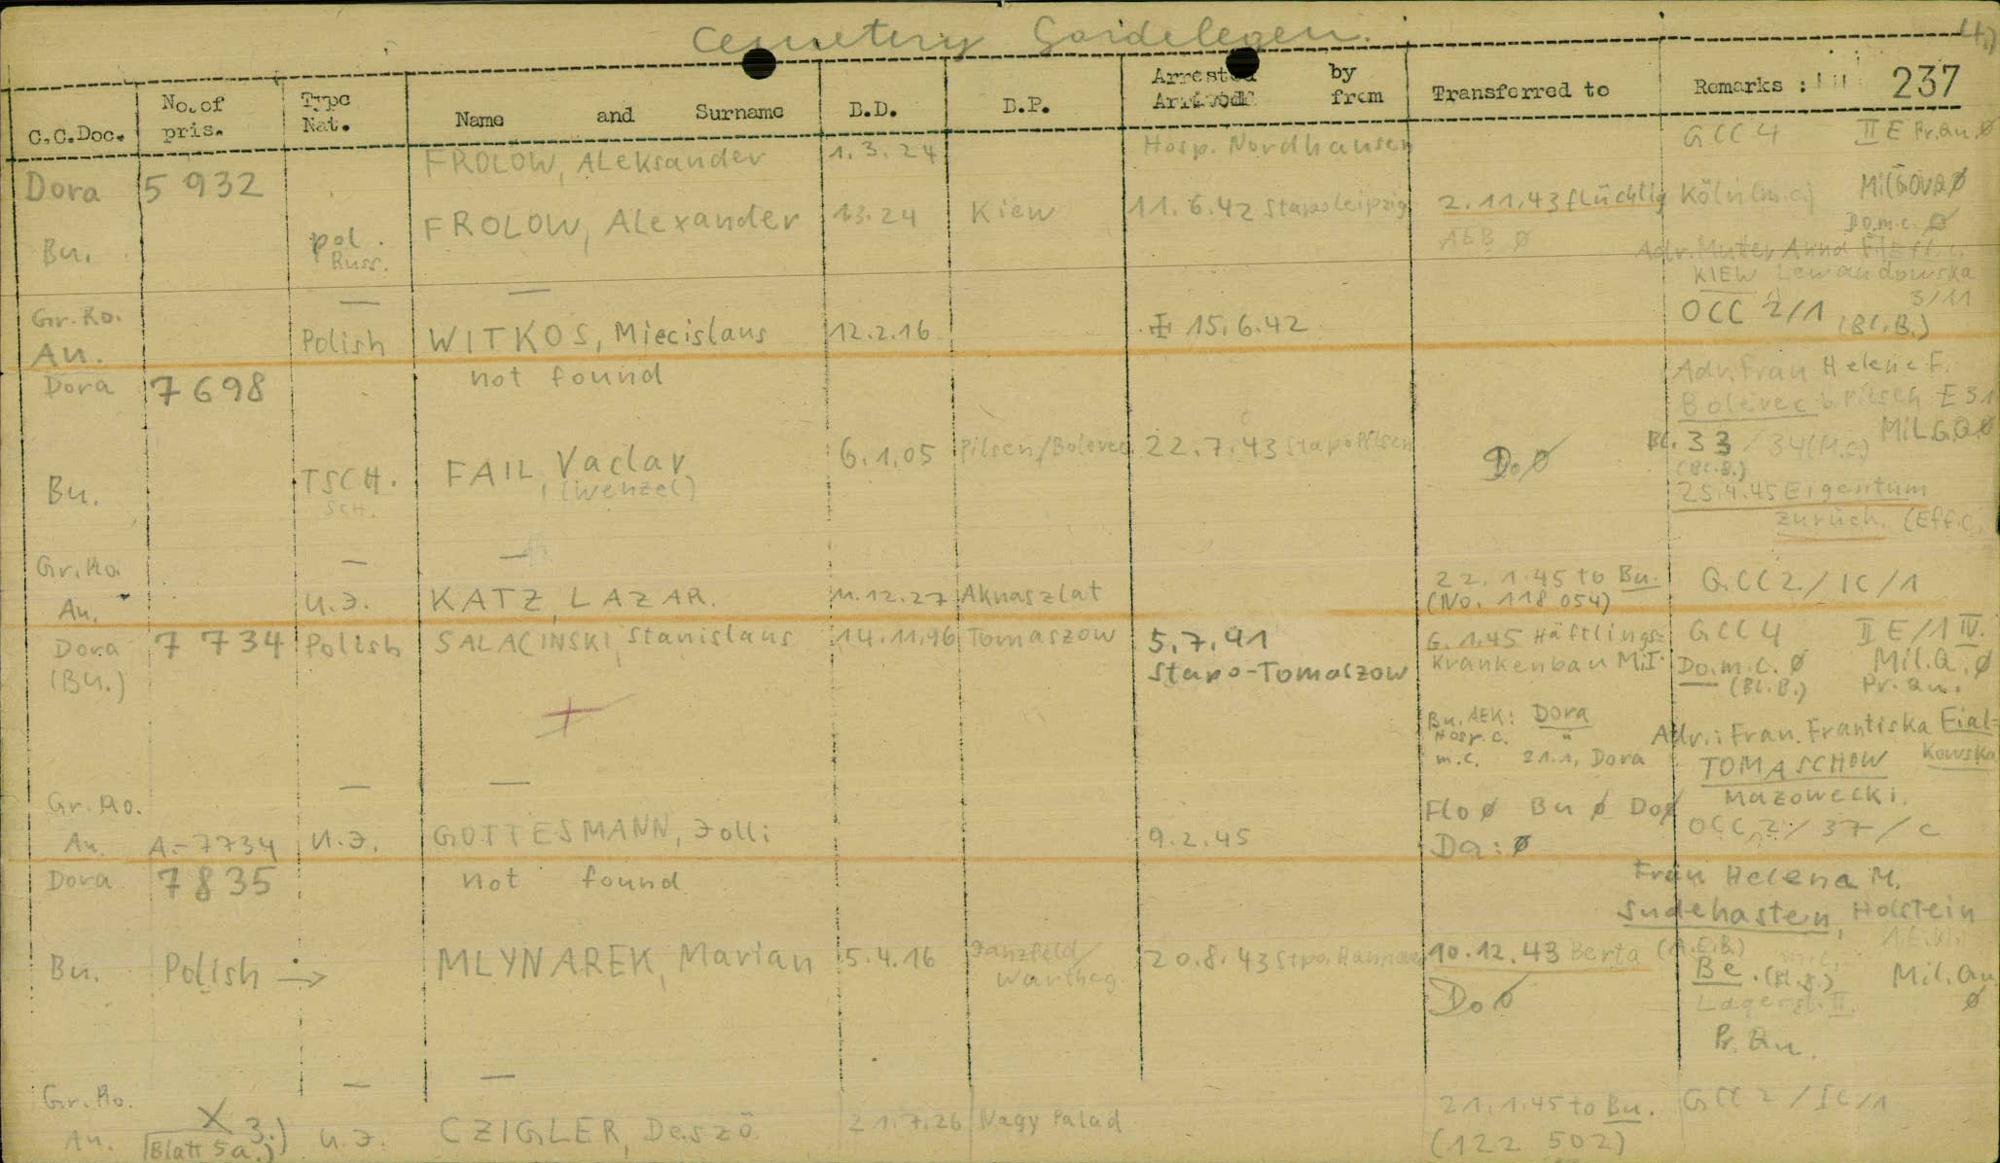 Cemetery Gardelegen. 4.)
C.C.Doc. No. of pris. Type Nat. Name and Surname B.D. B.P. Arrested by Arrived from Transferred to Remarks : 237
FROLOW, Aleksander 1.3.24 Hosp. Nordhausen GCC 4 II E Pr.Qu. Ø
Dora 5 932
Bu. pol. Russ. FROLOW, Alexander 1.3.24 Kiew 11.6.42 Stapo Leipzig 2.11.43 flüchtig Köln (m.c.) MilGovQ Ø
AEB Ø Do.m.c. Ø
Adr. Mutter Anna
KIEW Lewandowska
3/11
Gr. Ro. — —
An. Polish WITKOS, Miecislaus 12.2.16 15.6.42 OCC 2/1 (Bl.B.)
Dora 7698 not found
Adr. Frau Helene F.
Bolevec b. Pilsen E 31
Bu. TSCH. SCH. FAIL, Vaclav (Wenzel) 6.1.05 Pilsen/Bolevec 22.7.43 Stapo Pilsen Do Ø Bl. 33 / 34 (M.c.) Mil.G.Q. Ø
(Bl.B.)
25.4.45 Eigentum
zurück. (Eff.C.
Gr. Ro. — —
An. U.J. KATZ, LAZAR. 11.12.27 Aknaszlat 22.1.45 to Bu. GCC 2/ IC/1
(No. 118 054)
Dora 7 734 Polish SALACINSKI, Stanislaus 14.11.96 Tomaszow 5.7.41 6.1.45 Häftlings= GCC 4 II E/1 IV.
(Bu.) Stapo-Tomaszow Krankenbau M.I. Do.m.c. Ø Mil.Q. Ø
(Bl.B.) Pr. Qu.
Bu. AEK: Dora
Hosp. c.
m.c. 21.1. Dora
Adr.: Frau. Frantiska Fial=
kowska
TOMASCHOW
Mazowecki.
Gr. Ro. — — Flo Ø Bu Ø Do Ø
An. A-7734 U.J. GOTTESMANN, Jolli 9.2.45 Da: Ø OCC 2/37/c
Dora 7835 not found
Frau Helena M.
Sudehasten, Holstein
Bu. Polish → MLYNAREK, Marian 5.4.16 Wartheg. 20.8.43 Stpo. Hannover 10.12.43 Berta (A.E.B.)
Do Ø Be. (Bl.B.) Mil. Qu. Ø
Lagerst. II.
Pr. Qu.
Gr. Ro. — —
An. X 3.) U.J. CZIGLER, Deszö 21.7.26 Nagy Palad 21.1.45 to Bu. GCC 2/IC/1
(Blatt 5a.) (122 502)